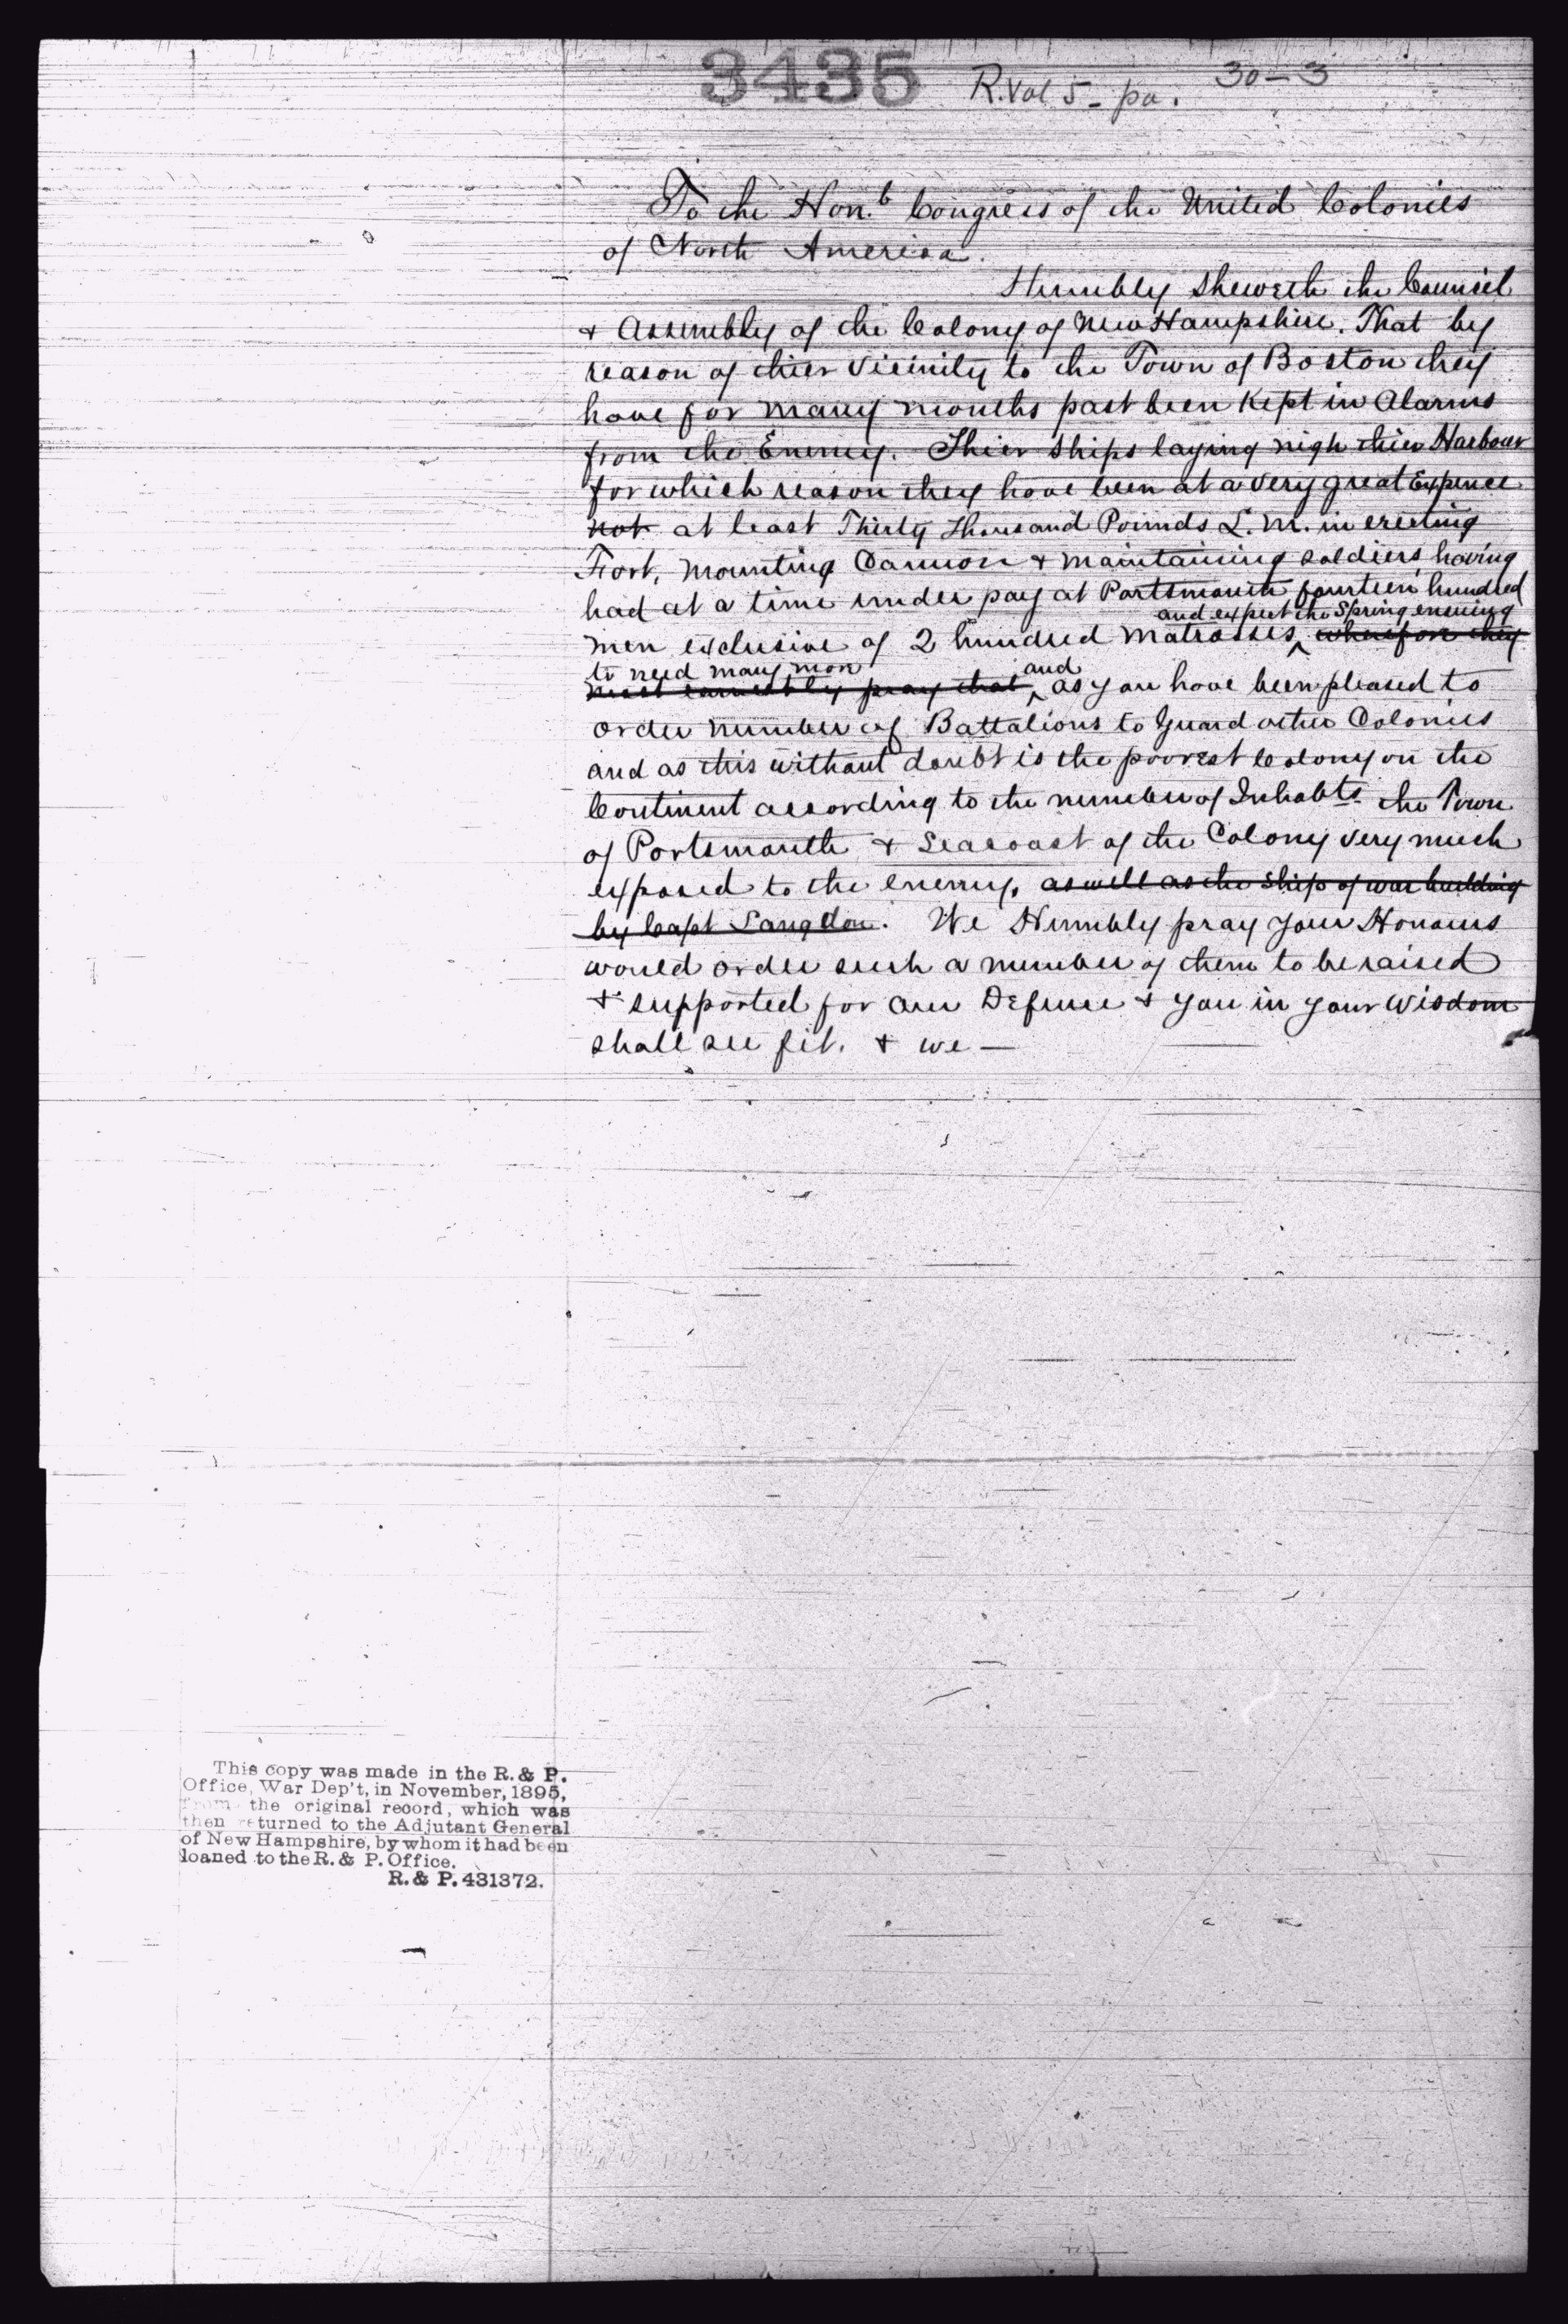 3435 R. Vol 5 - pa. 30-3
To the Hon.b Congress of the United Colonies
of North America.
Humbly Sheweth the Counsel
& Assembly of the Colony of New Hampshire. That by
reason of thier Vicinity to the Town of Boston they
have for many months past been Kept in Alarms
from the Enemy. Thier Ships laying nigh thier Harbour
for which reason they have been at a very great Expence
not at least Thirty Thousand Pounds L. M. in erecting
Fort, mounting Cannon & maintaining soldiers, having
had at a time under pay at Portsmouth fourteen hundred
and expect the Spring ensuing
men exclusive of 2 hundred Matrosses ^ wherefore they
to need many more and
most earnestly pray that ^ as you have been pleased to
order number of Battalions to Guard other Colonies
and as this without doubt is the poorest Colony on the
Continent according to the number of Inhabts the Town
of Portsmouth & Seacoast of the Colony very much
exposed to the enemy, as well as the Ship of war building
by Capt Langdon. We Humbly pray your Honours
would order such a number of them to be raised
& supported for our Defence & you in your Wisdom
shall see fit. & we —
This copy was made in the R. & P.
Office, War Dep't, in November, 1895,
from the original record, which was
then returned to the Adjutant General
of New Hampshire, by whom it had been
loaned to the R. & P. Office.
R. & P. 431372.